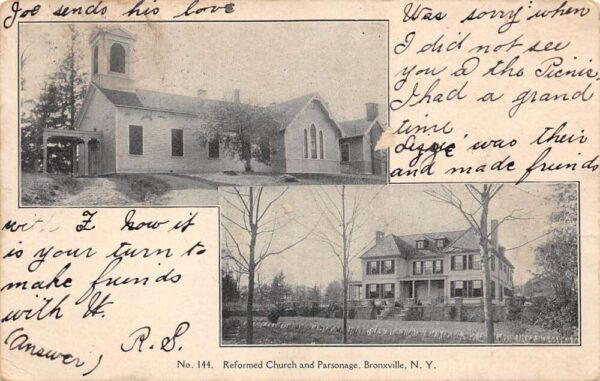 Joe sends his love
Was sorry when
I did not see
you a the Picnic,
I had a grand
time
was their
and made friends
with I now it
is your turn to
make friends
with It.
(Answer) R. S.
No. 144. Reformed Church and Parsonage, Bronxville, N. Y.